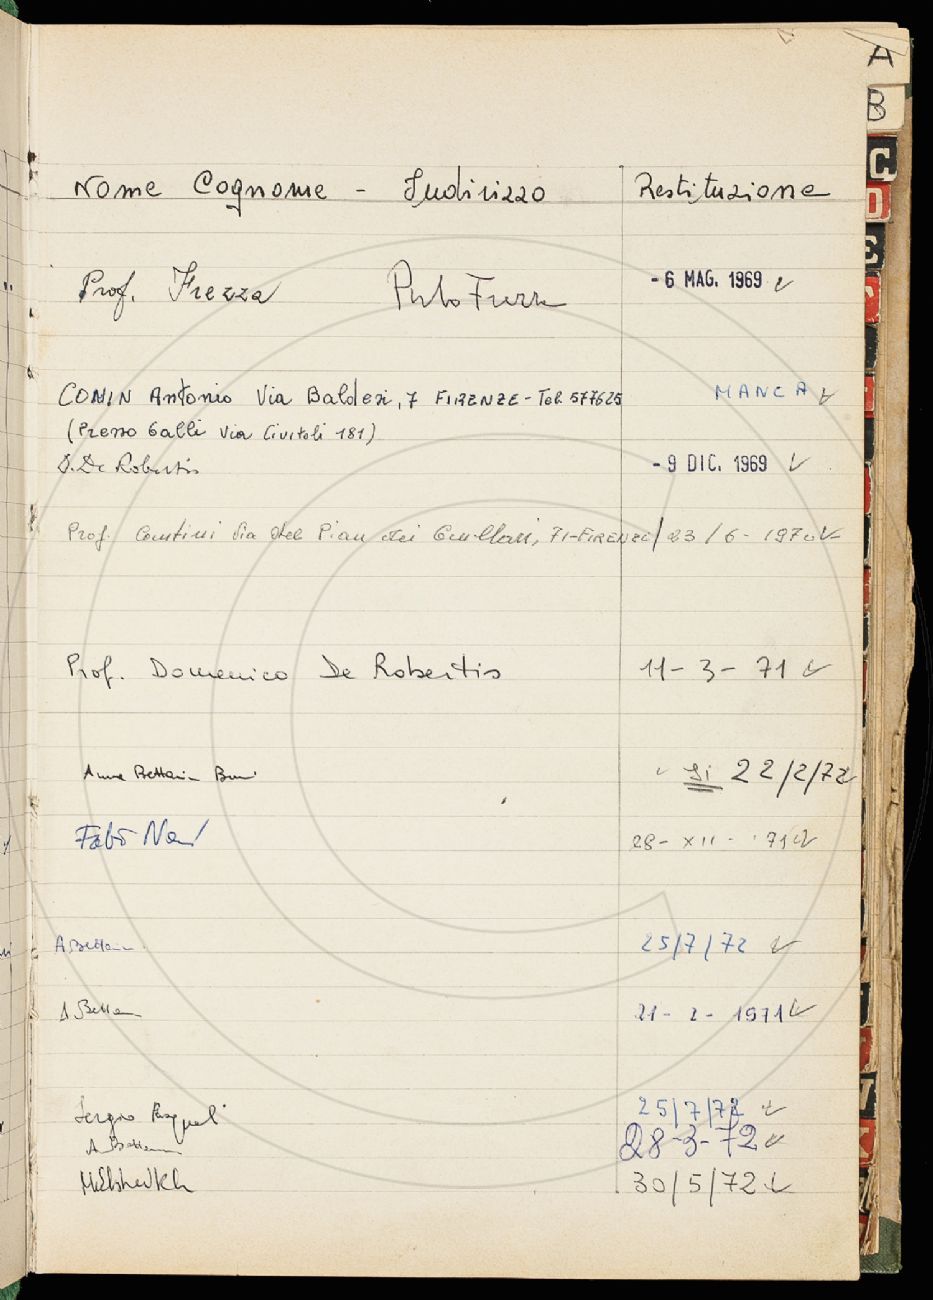 A
B
C
D
E
Nome Cognome - Indirizzo Restituzione
Prof. Frezza - 6 MAG. 1969
CONIN Antonio Via Baldesi, 7 FIRENZE - Tel. 577625 MANCA
(Presso Galli Via Civitali 181)
D. De Robertis - 9 DIC. 1969
Prof. Contini Via del Pian dei Giullari, 71-FIRENZE / 23/6-1970
Prof. Domenico De Robertis 11-3-71
Anna Bettarini Bruni Si 22/2/72
28-XII-'71
A Bettarini 25/7/72
A Bettarini 21-2-1971
Sergio 25/7/72
A Bettarini 28-3-72
30/5/72